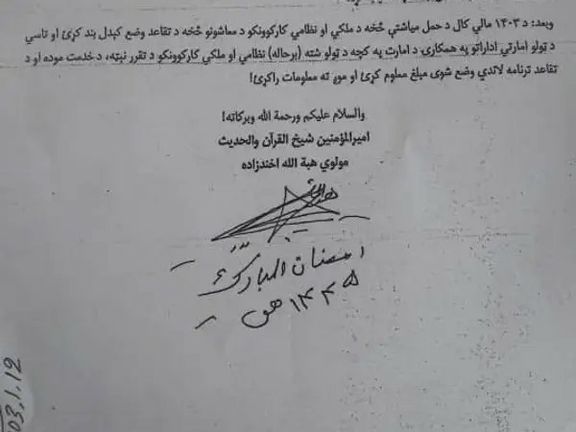 وبعد: د ۱۴۰۳ مالي کال د حمل میاشتې څخه د ملکي او نظامي کارکوونکو د معاشونو څخه د تقاعد وضع کېدل بند کړئ او تاسي
د ټولو امارتي اداراتو په همکارۍ د امارت په کچه د ټولو شته (برحاله) نظامي او ملکي کارکوونکو د تقرر نېټه، د خدمت موده او د
تقاعد ترنامه لاندې وضع شوی مبلغ معلوم کړئ او موږ ته معلومات راکړئ!
والسلام علیکم ورحمة الله وبرکاته!
امیرالمؤمنین شیخ القرآن والحدیث
مولوي هبة الله اخندزاده
المبارک
۱۴۴۵ هـ ق
03,1,12